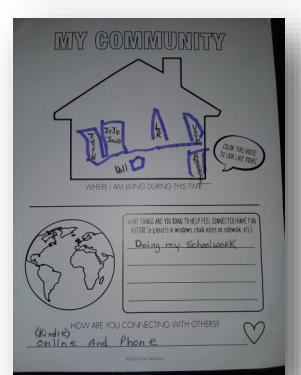 MY COMMUNITY
JoJo
ball
COLOR THIS HOUSE
TO LOOK LIKE YOURS
WHERE I AM LIVING DURING THIS TIME
WHAT THINGS ARE YOU DOING TO HELP FEEL CONNECTED/HAVE FUN
OUTSIDE (e.g hearts in windows, chalk notes on sidewalk, etc)
Doing my Schoolwork
HOW ARE YOU CONNECTING WITH OTHERS?
(Kindle)
Online And Phone